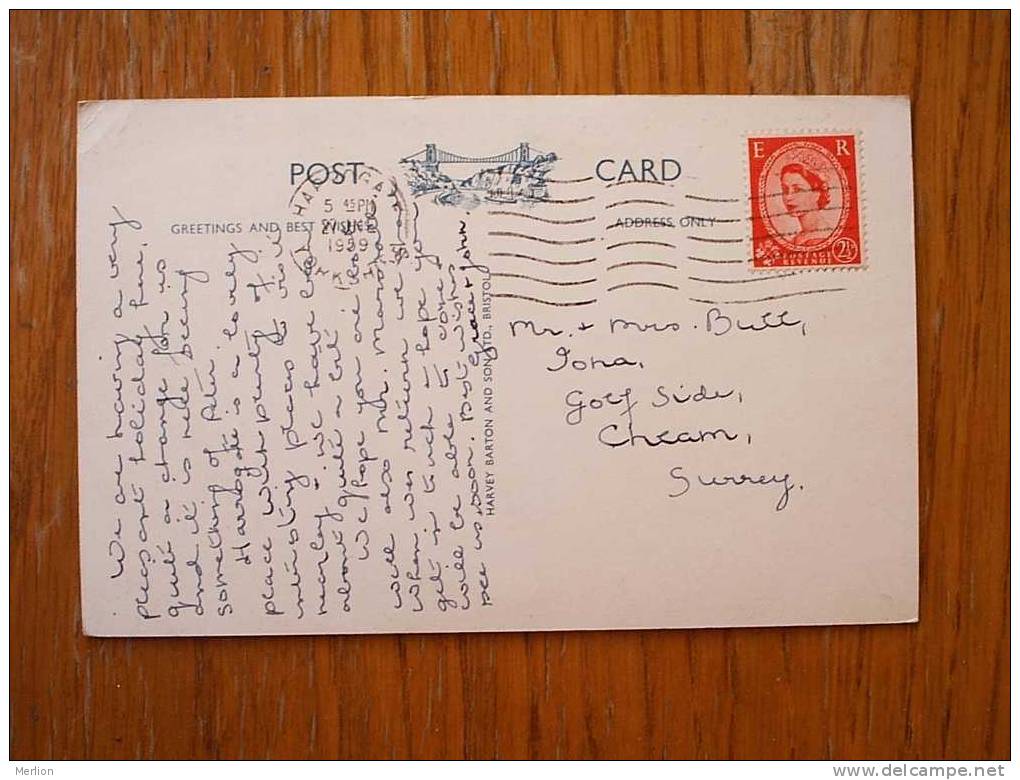 POST CARD
GREETINGS AND BEST WISHES
ADDRESS ONLY
HARROGATE
5 45 PM
1959
E R
POSTAGE
REVENUE
2½
We are having a very
pleasant holiday here,
quite a change for us
and it is nice seeing
something of Peter.
Harrogate is a lovely
place with plenty of
interesting places to visit
nearby & we have been
about quite a bit.
We hope you are both
well also Mr.
When we return we
get in touch & hope you
will be able to come &
see us soon. Best wishes
Grace & John.
HARVEY BARTON AND SON LTD., BRISTOL
Mr. & Mrs. Butt,
Iona,
Golf Side,
Cheam,
Surrey.
Merlion
www.delcampe.net